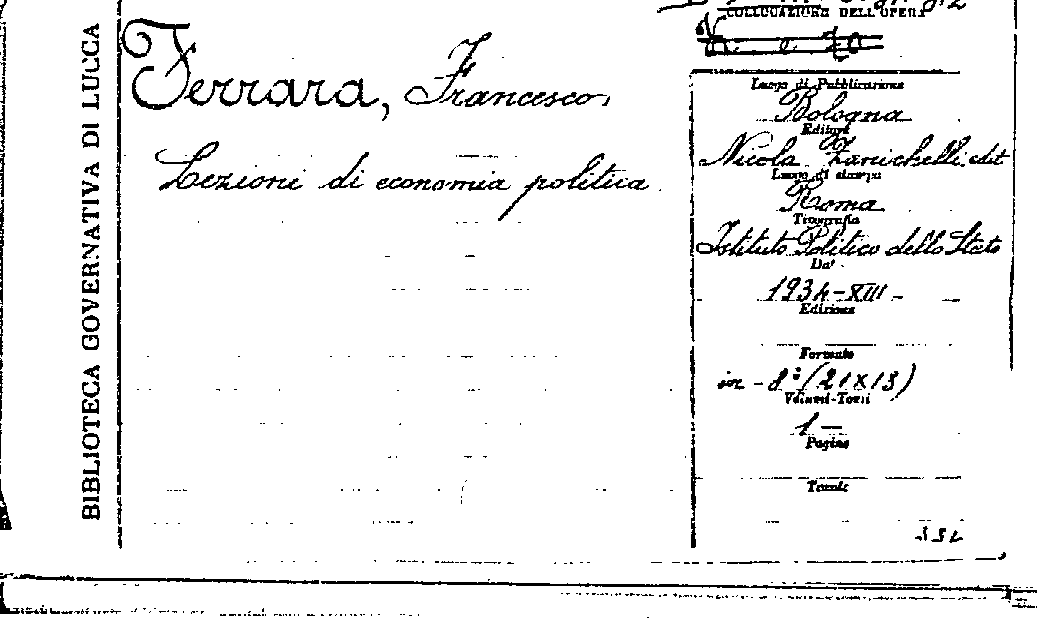 BIBLIOTECA GOVERNATIVA DI LUCCA
Ferrara, Francesco,
Lezioni di economia politica
COLLOCAZIONE DELL'OPERA
Luogo di Pubblicazione
Bologna
Editore
Nicola Zanichelli edit
Luogo di stampa
Roma
Tipografia
Istituto Politico dello Stato
Data
1934-XIII
Edizione
Formato
in - 8° (21x13)
Volumi-Tomi
1 -
Pagine
Tavole